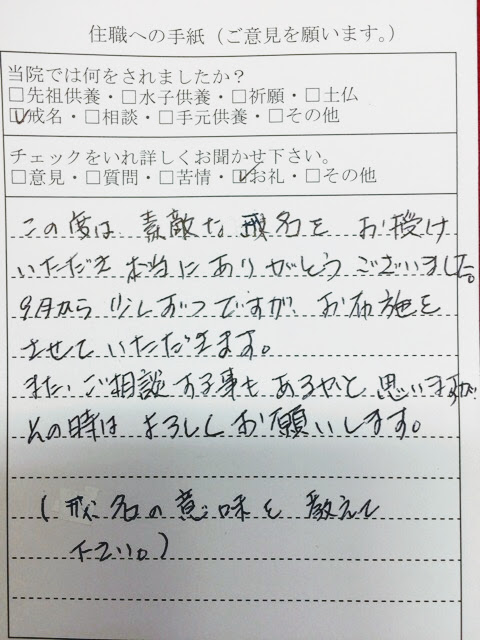 住職への手紙（ご意見を願います。）
当院では何をされましたか？
□先祖供養・□水子供養・□祈願・□土仏
☑戒名・□相談・□手元供養・□その他
チェックをいれ詳しくお聞かせ下さい。
□意見・□質問・□苦情・☑お礼・□その他
この度は 素敵な 戒名を お授け
いただき 本当に ありがとう ございました。
9月から 少しずつですが お布施を
させて いただきます。
また、ご相談する事も あるかと 思いますが
その時は よろしくお願いします。
（戒名の意味を 教えて
下さい。）